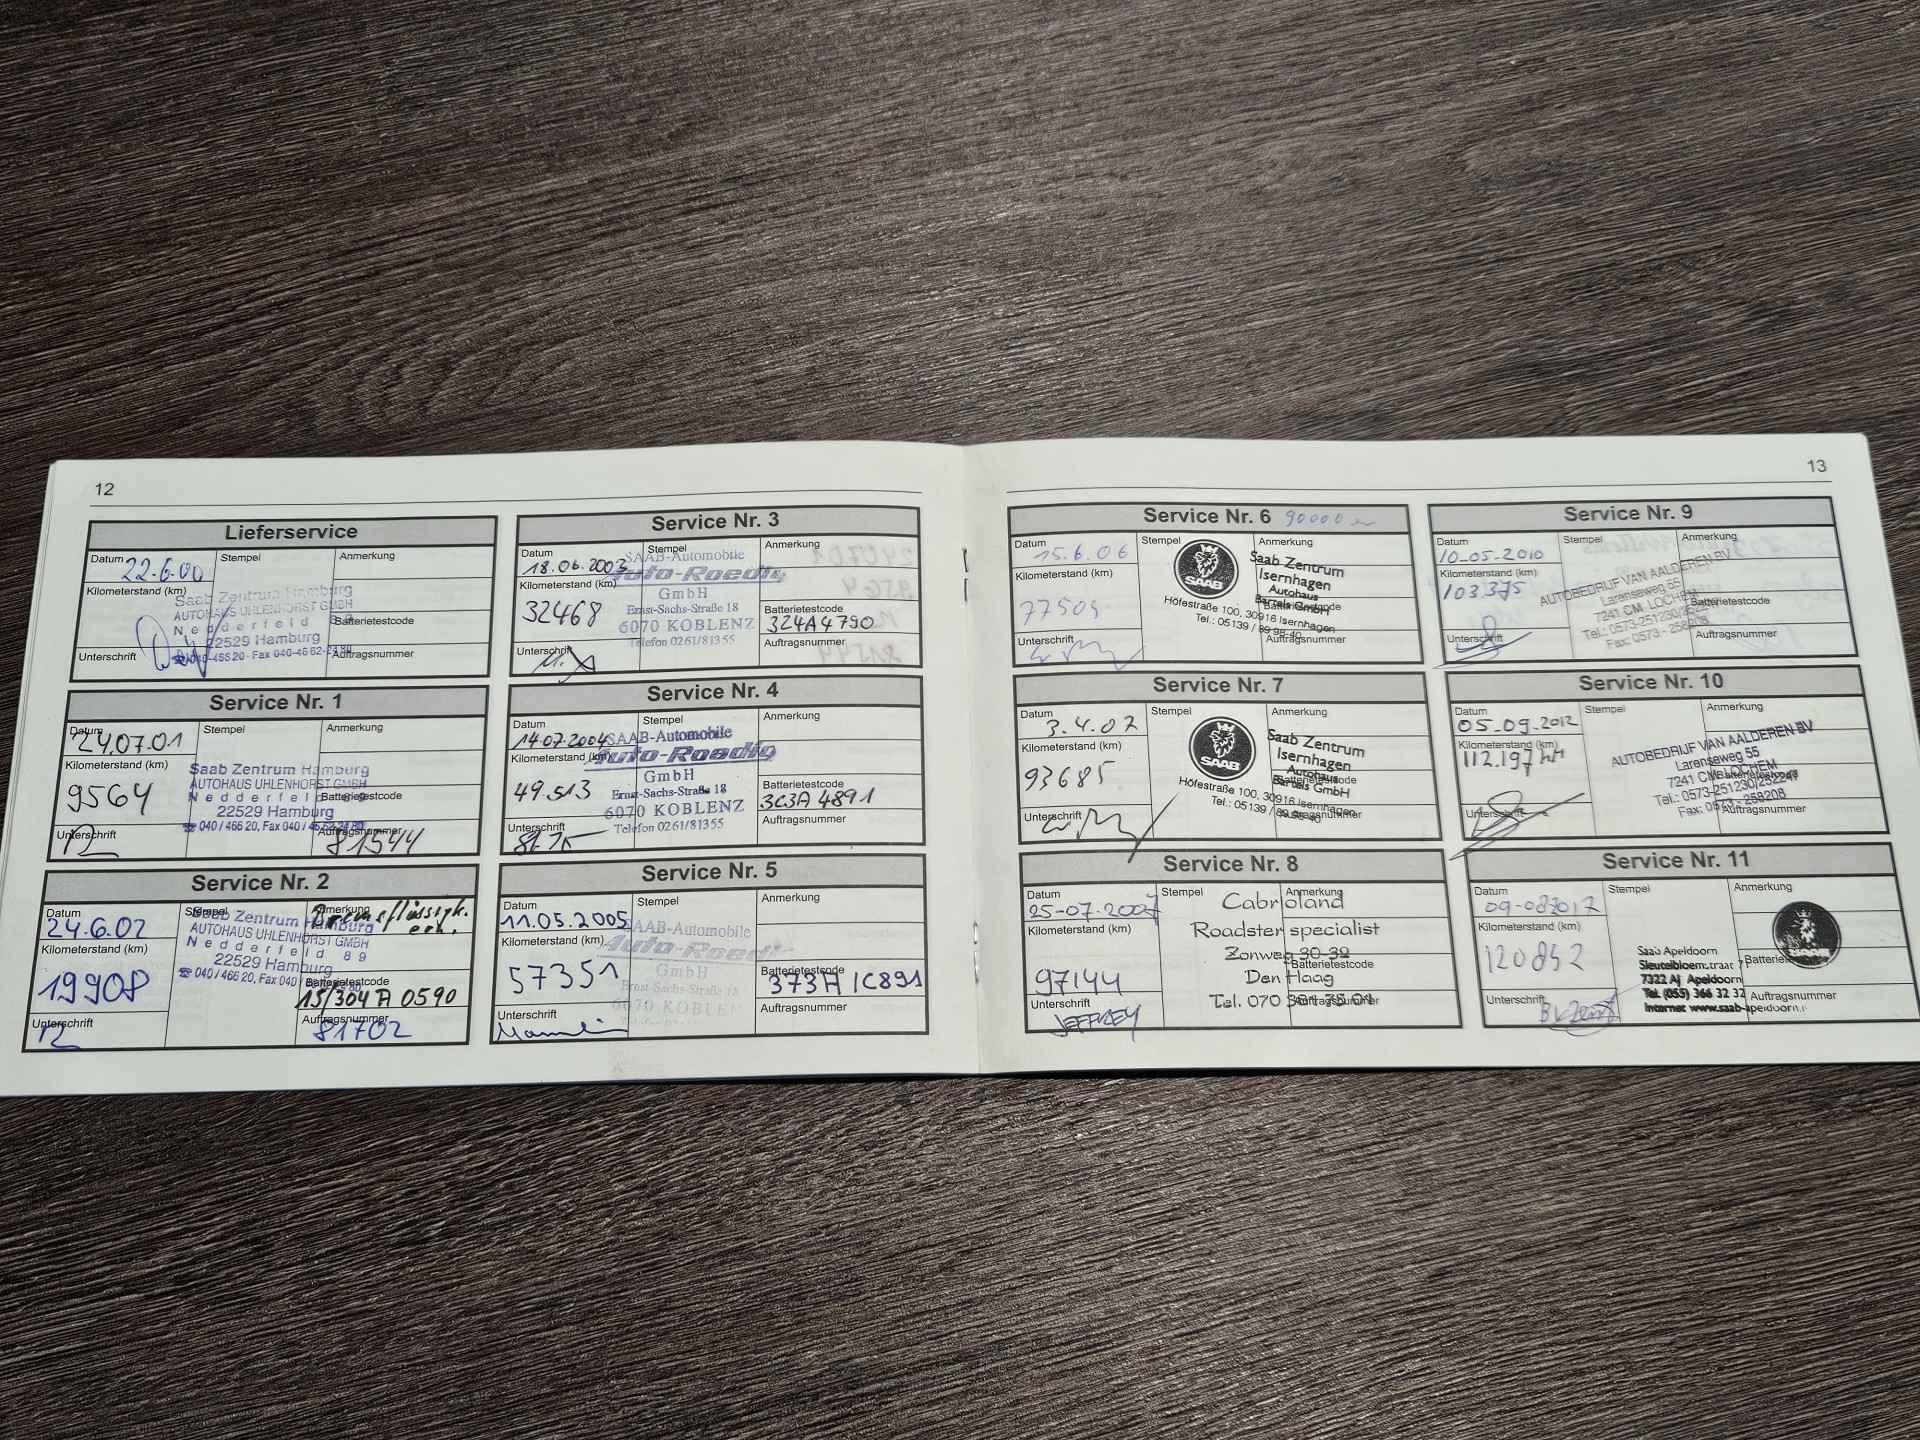 12
Lieferservice
Datum
22.6.00
Stempel
Anmerkung
Kilometerstand (km)
Saab Zentrum Hamburg
AUTOHAUS UHLENHORST GMBH
Nedderfeld 89
22529 Hamburg
Batterietestcode
Unterschrift
Auftragsnummer
Service Nr. 1
Datum
24.07.01
Stempel
Anmerkung
Kilometerstand (km)
9564
Saab Zentrum Hamburg
AUTOHAUS UHLENHORST GMBH
Nedderfeld 89
22529 Hamburg
☎ 040 / 466 20, Fax 040 /
Batterietestcode
Unterschrift
Auftragsnummer
81544
Service Nr. 2
Datum
24.6.02
Stempel
Anmerkung
Bremsflüssigk.
ern.
Kilometerstand (km)
19908
Saab Zentrum Hamburg
AUTOHAUS UHLENHORST GMBH
Nedderfeld 89
22529 Hamburg
☎ 040 / 466 20, Fax 040 /
Batterietestcode
13/304 A 0590
Unterschrift
Auftragsnummer
81702
Service Nr. 3
Datum
18.06.2003
Stempel
Anmerkung
Kilometerstand (km)
32468
SAAB-Automobile
Auto-Roedig
GmbH
Ernst-Sachs-Straße 18
6070 KOBLENZ
Telefon 0261/81355
Batterietestcode
324A4790
Unterschrift
Auftragsnummer
Service Nr. 4
Datum
14.07.2004
Stempel
Anmerkung
Kilometerstand (km)
49.513
SAAB-Automobile
Auto-Roedig
GmbH
Ernst-Sachs-Straße 18
6070 KOBLENZ
Telefon 0261/81355
Batterietestcode
3C3A 4891
Unterschrift
Auftragsnummer
Service Nr. 5
Datum
11.05.2005
Stempel
Anmerkung
Kilometerstand (km)
57351
SAAB-Automobile
Auto-Roedi
GmbH
Ernst-Sachs-Straße 18
6070 KOBLEN
Batterietestcode
373A 1C891
Unterschrift
Auftragsnummer
13
Service Nr. 6 90000
Datum
15.6.06
Stempel
Anmerkung
Kilometerstand (km)
SAAB
Saab Zentrum
Isernhagen
Autohaus
Bartels GmbH
Höfestraße 100, 30916 Isernhagen
Tel.: 05139 / 89 98-40
Batterietestcode
Unterschrift
Auftragsnummer
Service Nr. 7
Datum
3.4.07
Stempel
Anmerkung
Kilometerstand (km)
93685
SAAB
Saab Zentrum
Isernhagen
Autohaus
Bartels GmbH
Höfestraße 100, 30916 Isernhagen
Tel.: 05139 / 89 98-40
Batterietestcode
Unterschrift
Auftragsnummer
Service Nr. 8
Datum
25-07-2007
Stempel
Anmerkung
Kilometerstand (km)
97144
Cabrioland
Roadster specialist
Zonweg 30-32
Den Haag
Tel. 070
Batterietestcode
Unterschrift
JEFFREY
Auftragsnummer
Service Nr. 9
Datum
10-05-2010
Stempel
Anmerkung
Kilometerstand (km)
103375
AUTOBEDRIJF VAN AALDEREN BV
Larenseweg 55
7241 CM LOCHEM
Tel.: 0573-251230/252247
Fax: 0573 - 258208
Batterietestcode
Unterschrift
Auftragsnummer
Service Nr. 10
Datum
05-09-2012
Stempel
Anmerkung
Kilometerstand (km)
112.197 km
AUTOBEDRIJF VAN AALDEREN BV
Larenseweg 55
7241 CM LOCHEM
Tel.: 0573-251230/252247
Fax: 0573 - 258208
Batterietestcode
Unterschrift
Auftragsnummer
Service Nr. 11
Datum
Stempel
Anmerkung
Kilometerstand (km)
120842
Saab Apeldoorn
Sleutelbloemstraat 7
7322 AJ Apeldoorn
Tel. (055) 366 32 32
Internet www.saab-apeldoorn.n
Unterschrift
Auftragsnummer